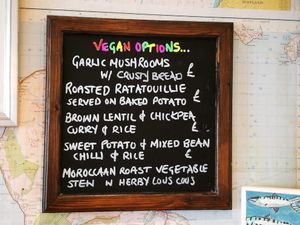 VEGAN OPTIONS...
GARLIC MUSHROOMS
W/ CRUSTY BREAD £
ROASTED RATATOUILLIE
SERVED ON BAKED POTATO £
BROWN LENTIL & CHICKPEA
CURRY & RICE £
SWEET POTATO & MIXED BEAN
CHILLI & RICE £
MOROCCAN ROAST VEGETABLE
STEW W HERBY COUS COUS